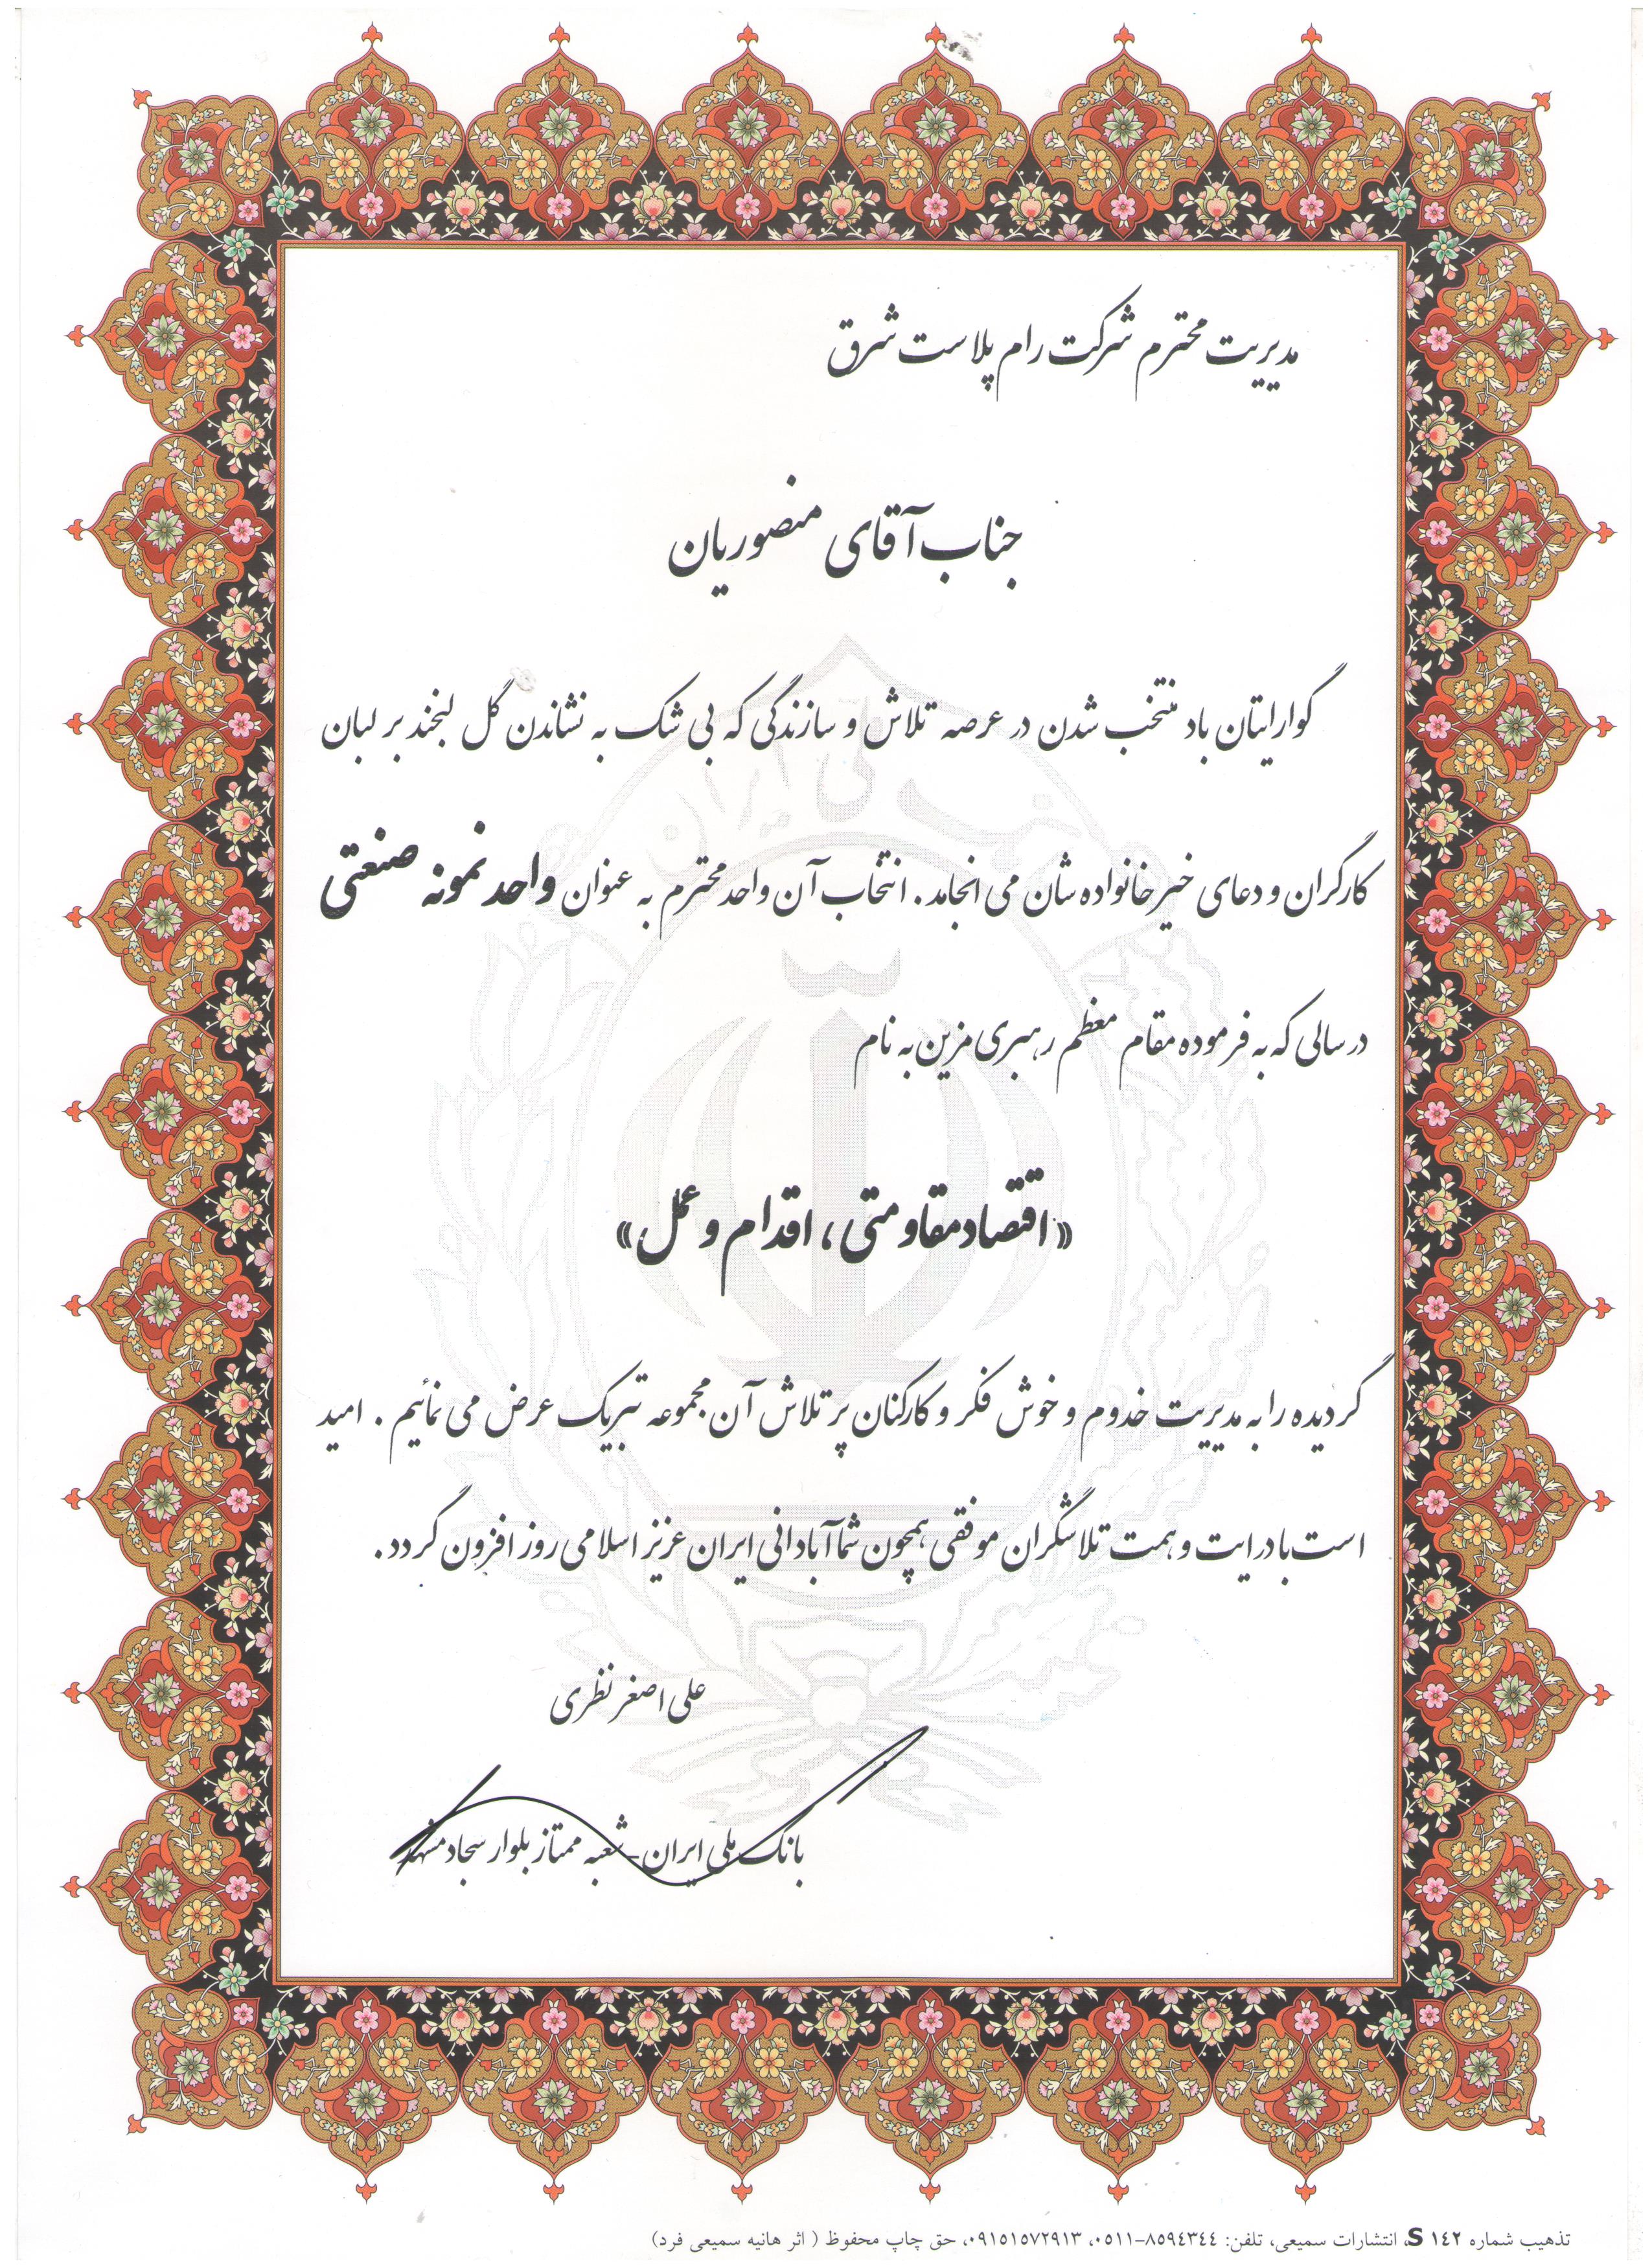 مدیریت محترم شرکت رام پلاست شرق
جناب آقای منصوریان
گوارایتان باد منتخب شدن در عرصه تلاش و سازندگی که بی شک به نشاندن گل لبخند بر لبان
کارگران و دعای خیر خانواده شان می انجامد. انتخاب آن واحد محترم به عنوان واحد نمونه صنعتی
در سالی که به فرموده مقام معظم رهبری مزین به نام
«اقتصاد مقاومتی، اقدام و عمل»
گردیده را به مدیریت خدوم و خوش فکر و کارکنان پر تلاش آن مجموعه تبریک عرض می نمائیم. امید
است با درایت و همت تلاشگران موفقی همچون شما آبادانی ایران عزیز اسلامی روز افزون گردد.
علی اصغر نظری
بانک ملی ایران-شعبه ممتاز بلوار سجاد مشهد
تذهیب شماره S ۱۴۲، انتشارات سمیعی، تلفن: ۸۵۹٤۳٤٤-۰۵۱۱، ۰۹۱۵۱۵۷۲۹۱۳، حق چاپ محفوظ ( اثر هانیه سمیعی فرد)